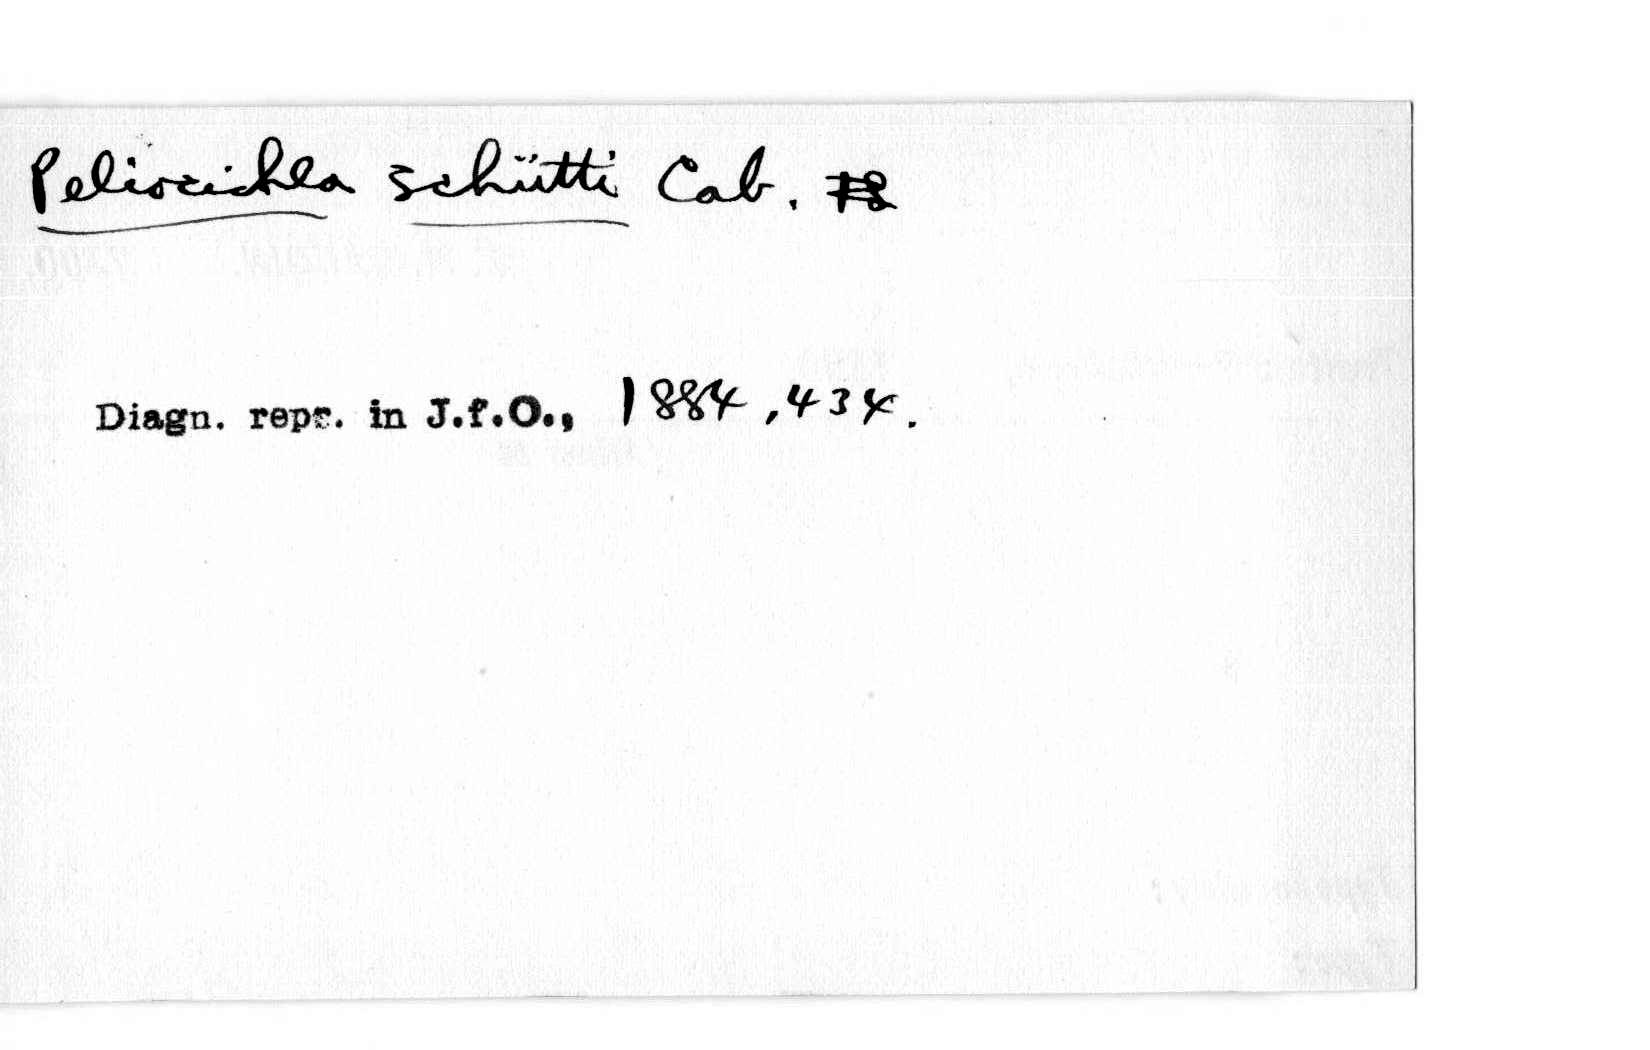 Peliocichla schütti Cab.
Diagn. repr. in J.f.O., 1884, 434.